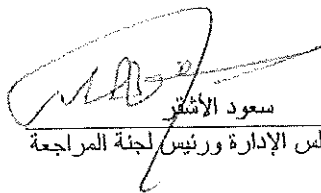 سعود الأشقر
لس الإدارة ورئيس لجنة المراجعة